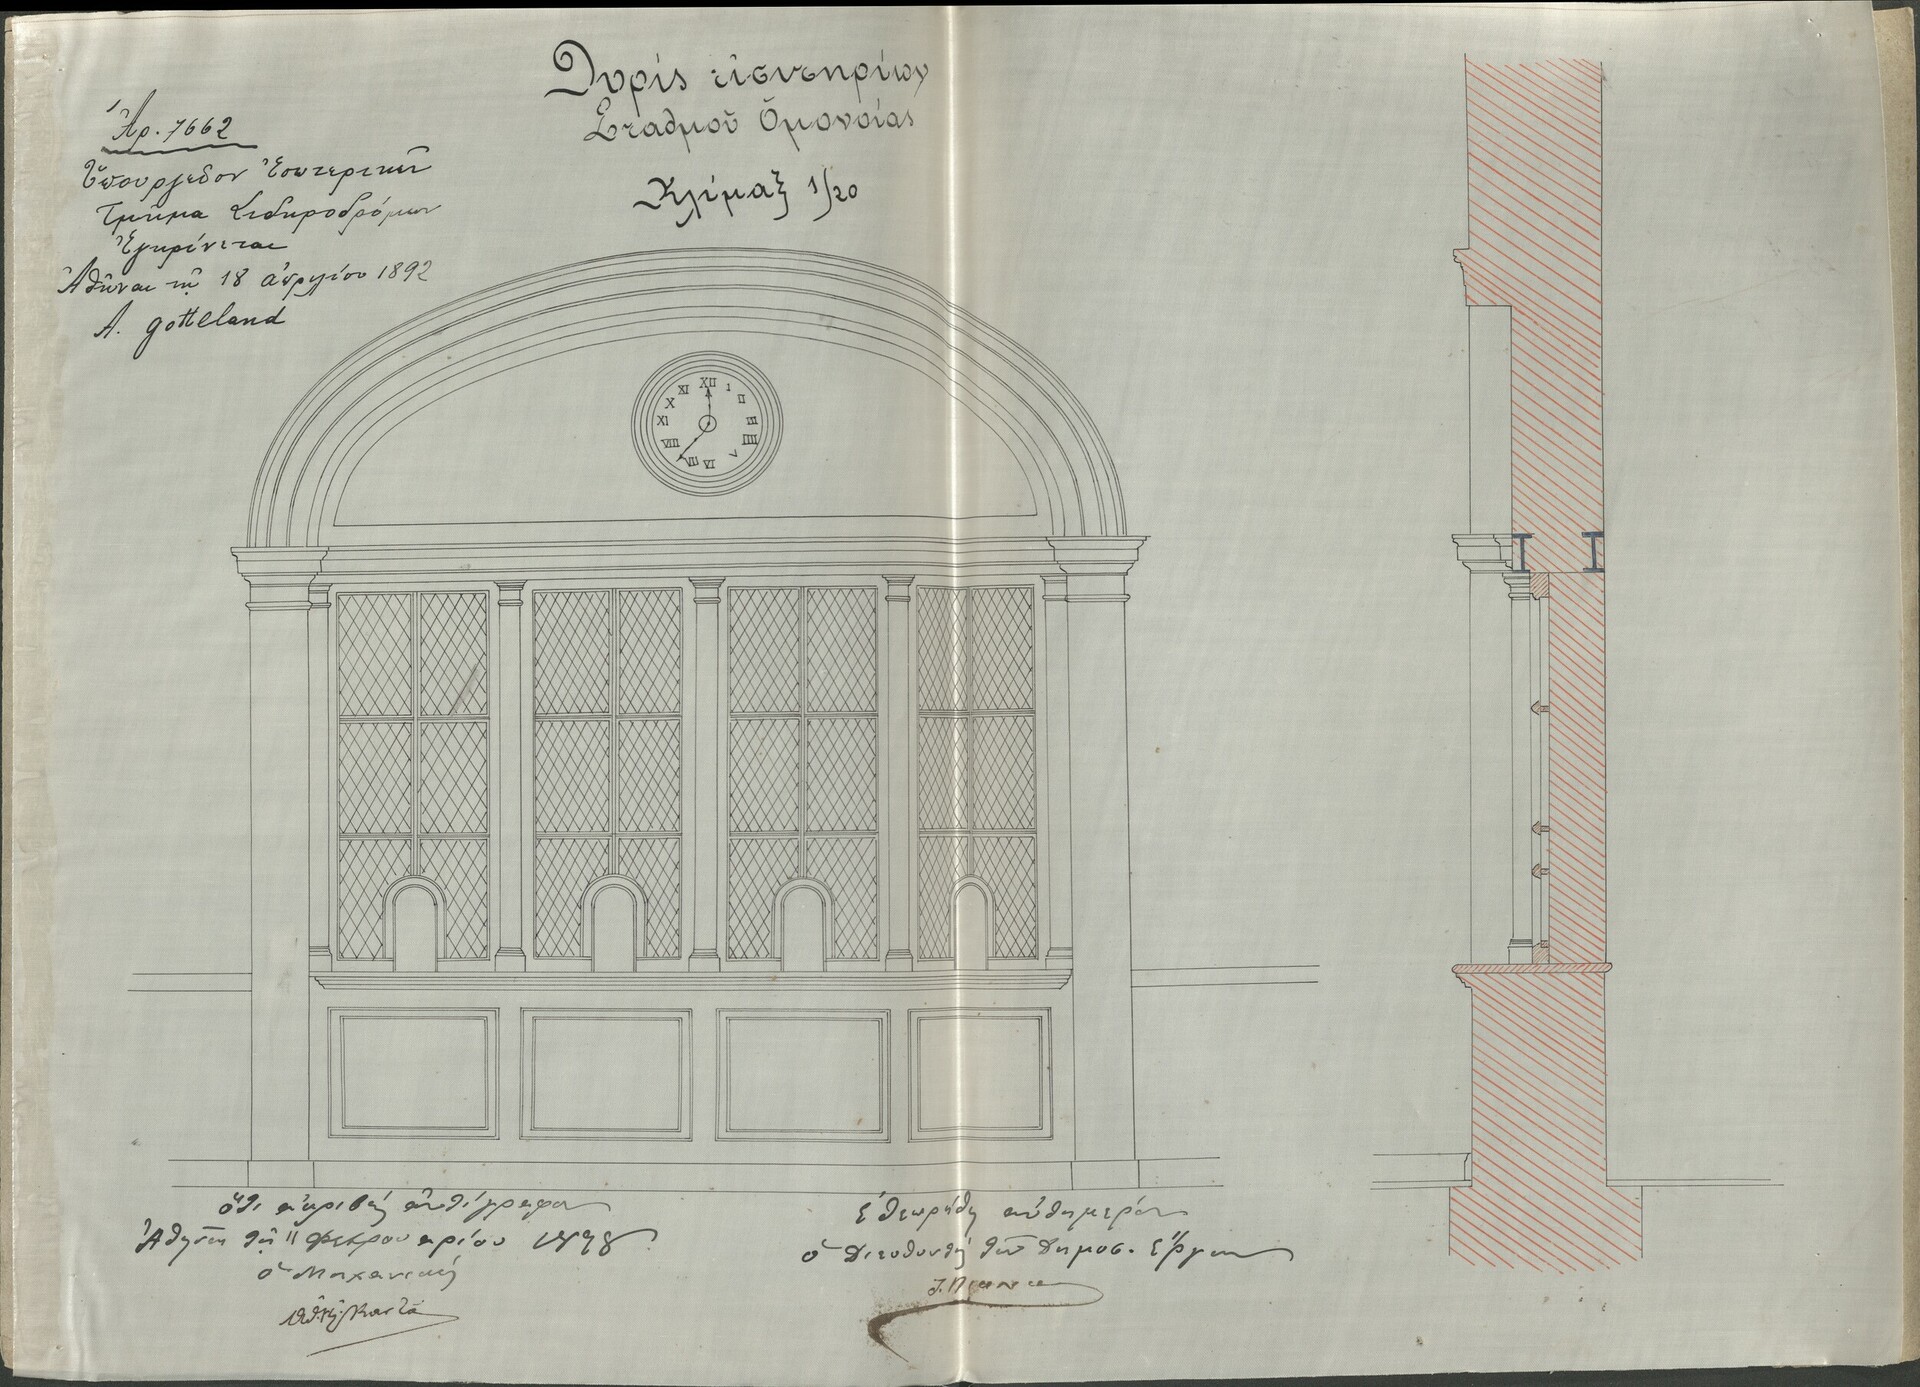 Θυρίς εἰσιτηρίων
Σταθμοῦ Ὁμονοίας
Κλίμαξ 1/20
Ἀρ. 7662
Ὑπουργεῖον Ἐσωτερικῶν
Τμῆμα Σιδηροδρόμων
Ἐγκρίνεται
Ἀθῆναι τῇ 18 Ἀπριλίου 1892
A. Gotteland
XII
I
II
III
IIII
V
VI
VII
VIII
XI
X
XI
Ὅτι ἀκριβές ἀντίγραφον
Ἀθήνησι τῇ 11 Φεβρουαρίου 1898
ὁ Μηχανικός
Ἐθεωρήθη αὐθημερόν
ὁ Διευθυντής τῶν Δημοσ. Ἔργων